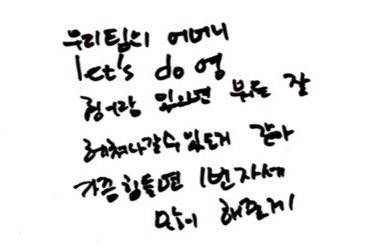 우리팀의 어머니
let's do 영
형어랑 있으면 뭐든 잘
헤쳐나갈수있는거 같아
가끔 힘들면 1번자세
많이 해줄게